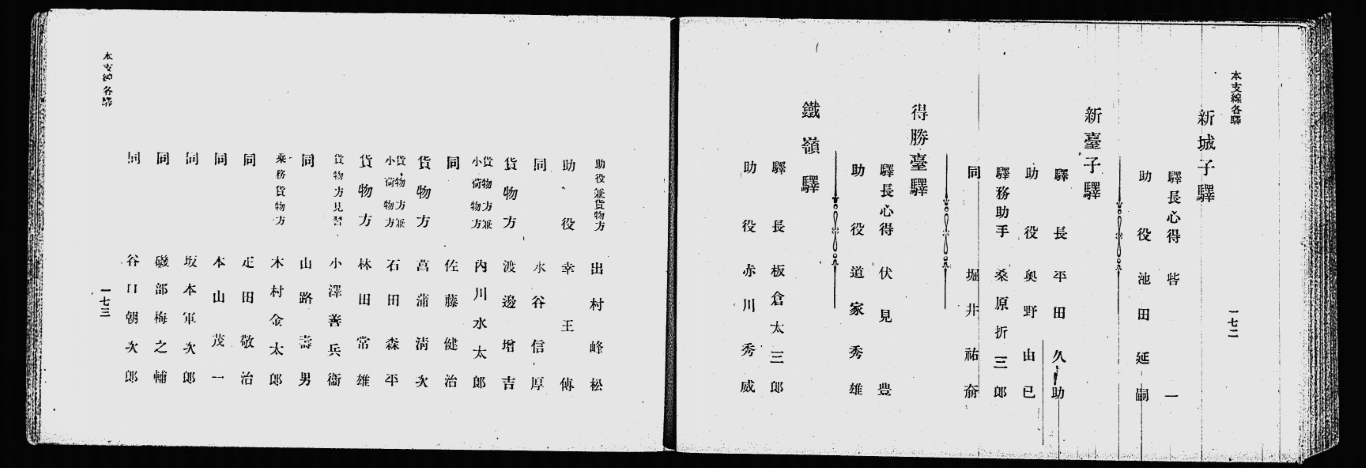 本支線各驛
一七二
新城子驛
驛長心得 砦 一
助役 池田延嗣
新臺子驛
驛長 平田久助
助役 奥野山已
驛務助手 桑原折三郎
同 堀井祐
得勝臺驛
驛長心得 伏見豊
助役 道家秀雄
鐵嶺驛
驛長 板倉太三郎
助役 赤川秀威
助役兼貨物方 出村峰松
助役 幸王傳
同 水谷信厚
貨物方 渡邊增吉
貨物方兼小荷物方 内川水太郎
同 佐藤健治
貨物方 菖蒲清次
貨物方兼小荷物方 石田森平
貨物方 林田常雄
貨物方見習 小澤善兵衞
同 山路壽男
乘務貨物方 木村金太郎
同 疋田敬治
同 本山茂一
同 坂本軍次郎
同 磯部梅之輔
同 谷口朝次郎
本支線各驛
一七三